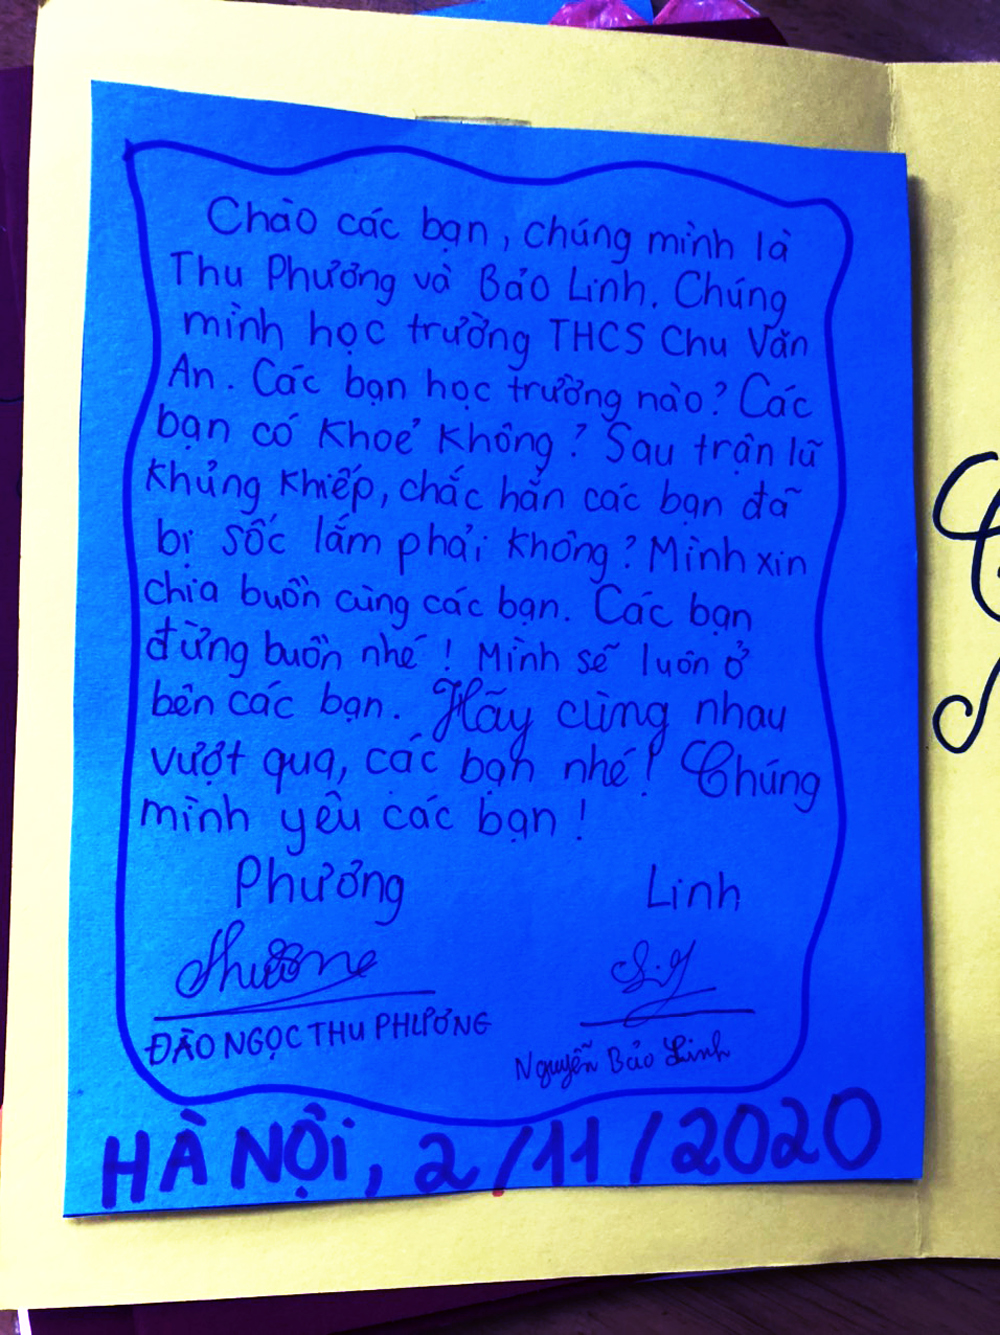 Chào các bạn, chúng mình là
Thu Phương và Bảo Linh. Chúng
mình học trường THCS Chu Văn
An. Các bạn học trường nào? Các
bạn có khoẻ không? Sau trận lũ
khủng khiếp, chắc hẳn các bạn đã
bị sốc lắm phải không? Mình xin
chia buồn cùng các bạn. Các bạn
đừng buồn nhé! Mình sẽ luôn ở
bên các bạn. Hãy cùng nhau
vượt qua, các bạn nhé! Chúng
mình yêu các bạn!
Phương Linh
Phương
ĐÀO NGỌC THU PHƯƠNG
Nguyễn Bảo Linh
HÀ NỘI, 2/11/2020